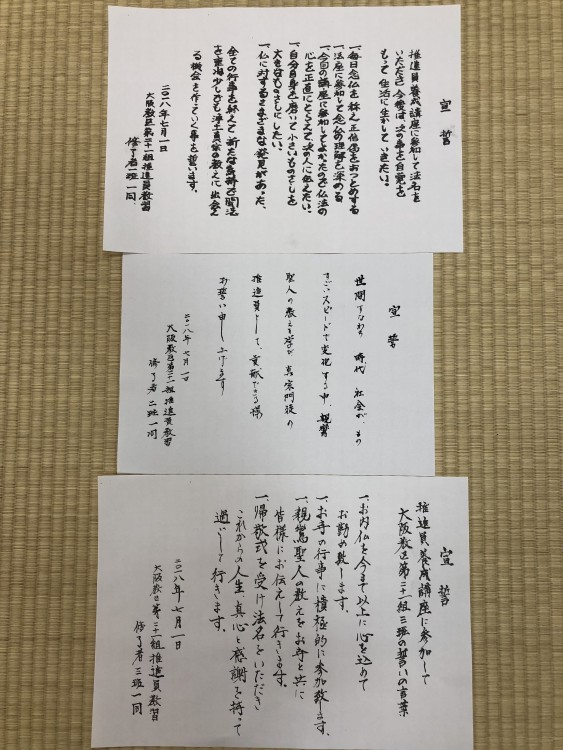 宣誓
推進員養成講座に参加して法名を
いただき今後は次の事を自覚を
もって生活に生かしていきたい。
一、毎日念仏を称え正信偈をおつとめする
一、法座に参加して念仏の理解を深める
一、今回の講座に参加してよかったので仏法の
心を正直にとらえて次の人に伝えたい。
一、自分自身を磨いて小さいものさしを
大きなものさしにしたい。
一、仏に対するさまざまな発見があった。
全ての行事を終えて新たな気持で聞法
を重ね少しでも浄土真宗の教えに出会え
る機会を作っていく事を誓います。
二〇一八年七月一日
大阪教区第二十一組推進員教習
修了者一班一同
宣誓
世間すなわち時代社会が、もの
すごいスピードで変化する中、親鸞
聖人の教えを学び真宗門徒の
推進員として、貢献できる様
お誓い申し上げます
二〇一八年七月一日
大阪教区第二十一組推進員教習
修了者二班一同
宣誓
推進員養成講座に参加して
大阪教区第二十一組三班の誓いの言葉
一、お内仏を今まで以上に心を込めて
お勤め致します。
一、お寺の行事に積極的に参加致します。
一、親鸞聖人の教えをお寺と共に
皆様にお伝えして行きます。
一、帰敬式を受け法名をいただき
これからの人生、真心と感謝を持って
過ごして行きます。
二〇一八年七月一日
大阪教区第二十一組推進員教習
修了者三班一同